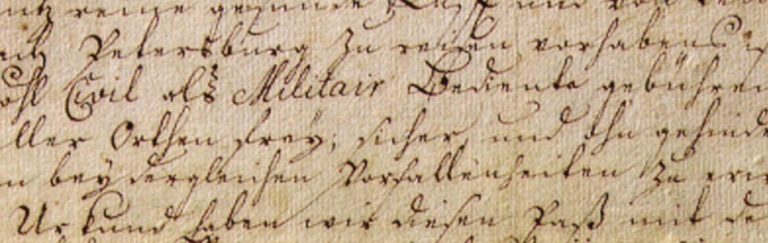 reine gesunde Lufft und von
Petersburg zu reisen vorhabens
Civil als Militair Bediente gebühren
aller Orthen frey, sicher, und ohn gehinde
n bey dergleichen Vorfallenheiten zu erw
Urkund haben wir diesen Paß mit de